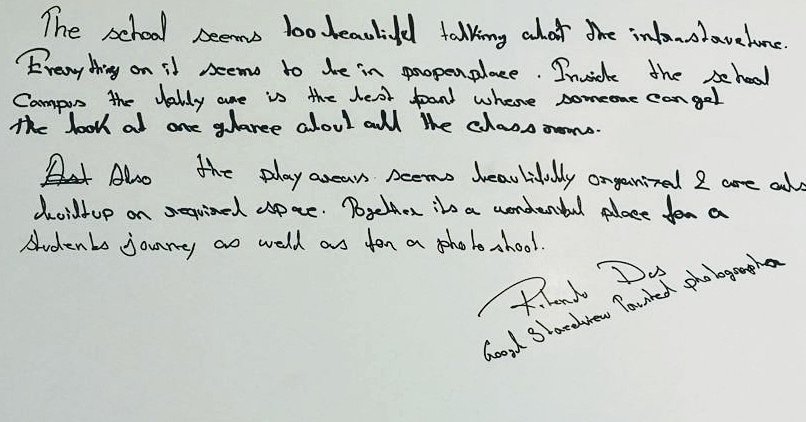 The school seems too beautiful talking about the infrastructure.
Everything on it seems to be in proper place. Inside the school
Campus the lobby one is the best part where someone can get
the look at one glance about all the classrooms.
Also the play areas seems beautifully organized & are also
builtup on required space. Together its a wonderful place for a
students journey as well as for a photoshoot.
Das
Google Streetview Trusted photographer